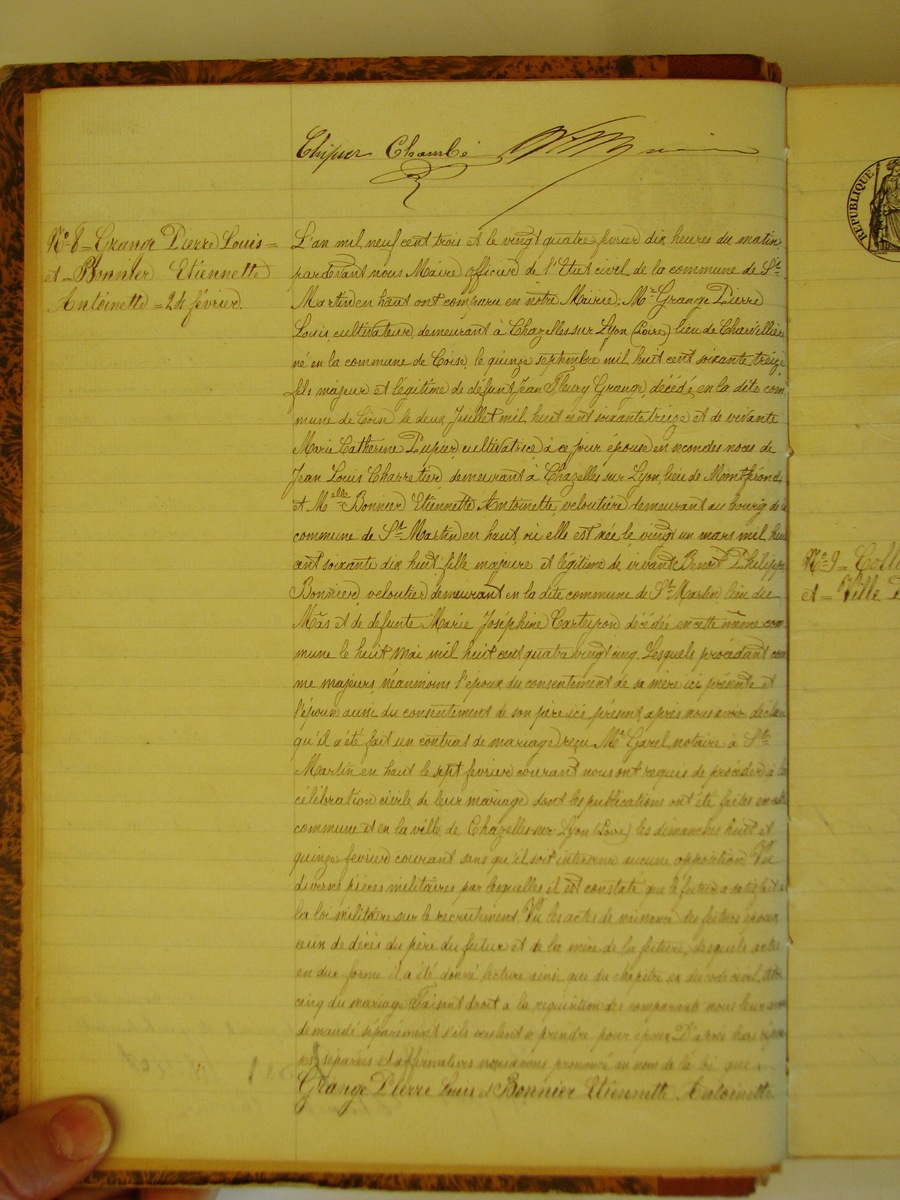 Chipier Chambe
N° 8 = Grange Pierre Louis =
et = Bonnier Etiennette
Antoinette = 24 février.
L'an mil neuf cent trois et le vingt quatre février dix heures du matin,
pardevant nous Maire officier de l'Etat civil de la commune de St
Martin en haut ont comparu en notre Mairie; Mr Grange Pierre
Louis, cultivateur, demeurant à Chazelles sur Lyon (Loire) lieu de
né en la commune de Coise, le quinze septembre mil huit cent soixante treize
fils majeur et légitime de défunt Jean Fleury Grange, décédé, en la dite com
mune de Coise le deux Juillet mil huit cent soixante treize et de vivante
Marie Catherine Pupier, cultivatrice, à ce jour épouse en secondes noces de
Jean Louis Charretier, demeurant à Chazelles sur Lyon, lieu de
et Melle Bonnier Etiennette Antoinette, veloutière demeurant au bourg de la
commune de St Martin en haut, où elle est née le vingt un mars mil huit
cent soixante dix huit, fille majeure et légitime de vivant Benoît Philippe
Bonnier, veloutier demeurant en la dite commune de St Martin, lieu du
Mas et de défunte Marie Joséphine décédée en cette même com
mune le huit Mai mil huit cent quatre vingt cinq. Lesquels procédant com
me majeurs, néanmoins l'époux du consentement de sa mère ici présente et
l'épouse aussi du consentement de son père ici présent après nous avoir déclaré
qu'il a été fait un contrat de mariage reçu Me Garel, notaire à St
Martin en haut le sept février courant nous ont requis de procéder à la
célébration civile de leur mariage dont les publications ont été faites en cette
commune et en la ville de Chazelles sur Lyon (Loire) les dimanches huit et
quinze février courant sans qu'il soit intervenu aucune opposition. Vu
diverses pièces militaires par lesquelles il est constaté que le futur a satisfait à
la loi militaire sur le recrutement. Vu les actes de naissance des futurs époux
ceux de décès du père du futur et de la mère de la future, desquels actes
en due forme il a été donné lecture ainsi que du chapitre six du code civil, titre
cinq du mariage. Faisant droit à la réquisition des comparants nous leur avons
demandé séparément s'ils veulent se prendre pour époux. D'après leurs répon
ses séparées et affirmatives nous avons prononcé au nom de la loi que
Grange Pierre Louis et Bonnier Etiennette Antoinette
RÉPUBLIQUE
N° 9 =
et = Ville